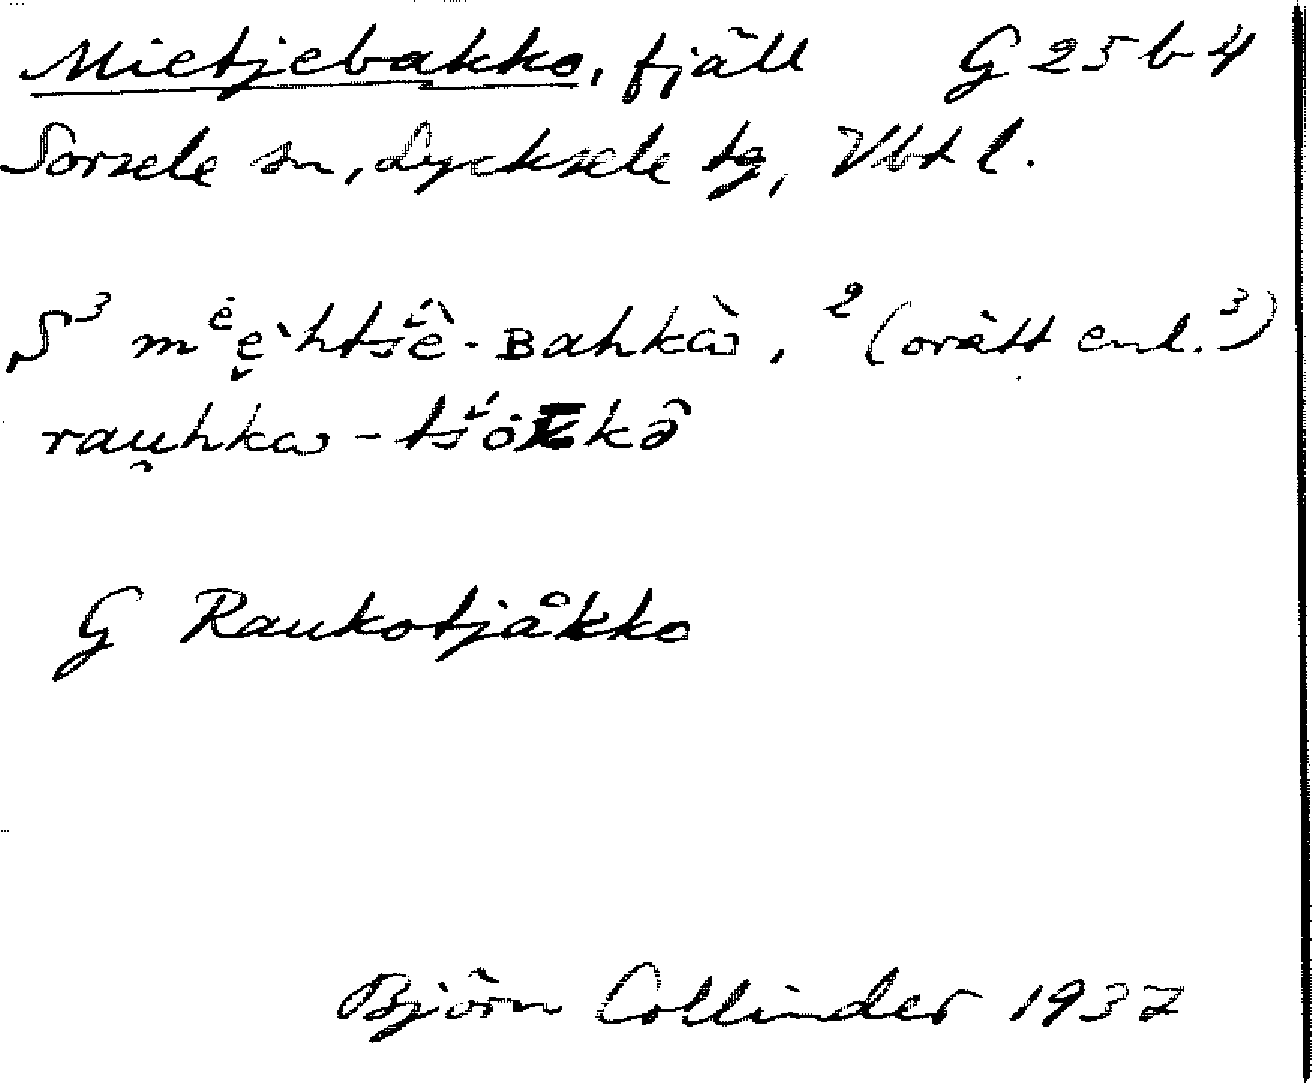 Mietjebakko, fjäll G 25 b 4
Sorsele sn, Lycksele tg, Vbt l.
S³ mᵉ̇è̮htśē̂-ʙahkὼ, ² (orätt enl. ³)
rau̯hkω-tś́ȯᴋkə̂
G Raukotjåkko
Björn Collinder 1937